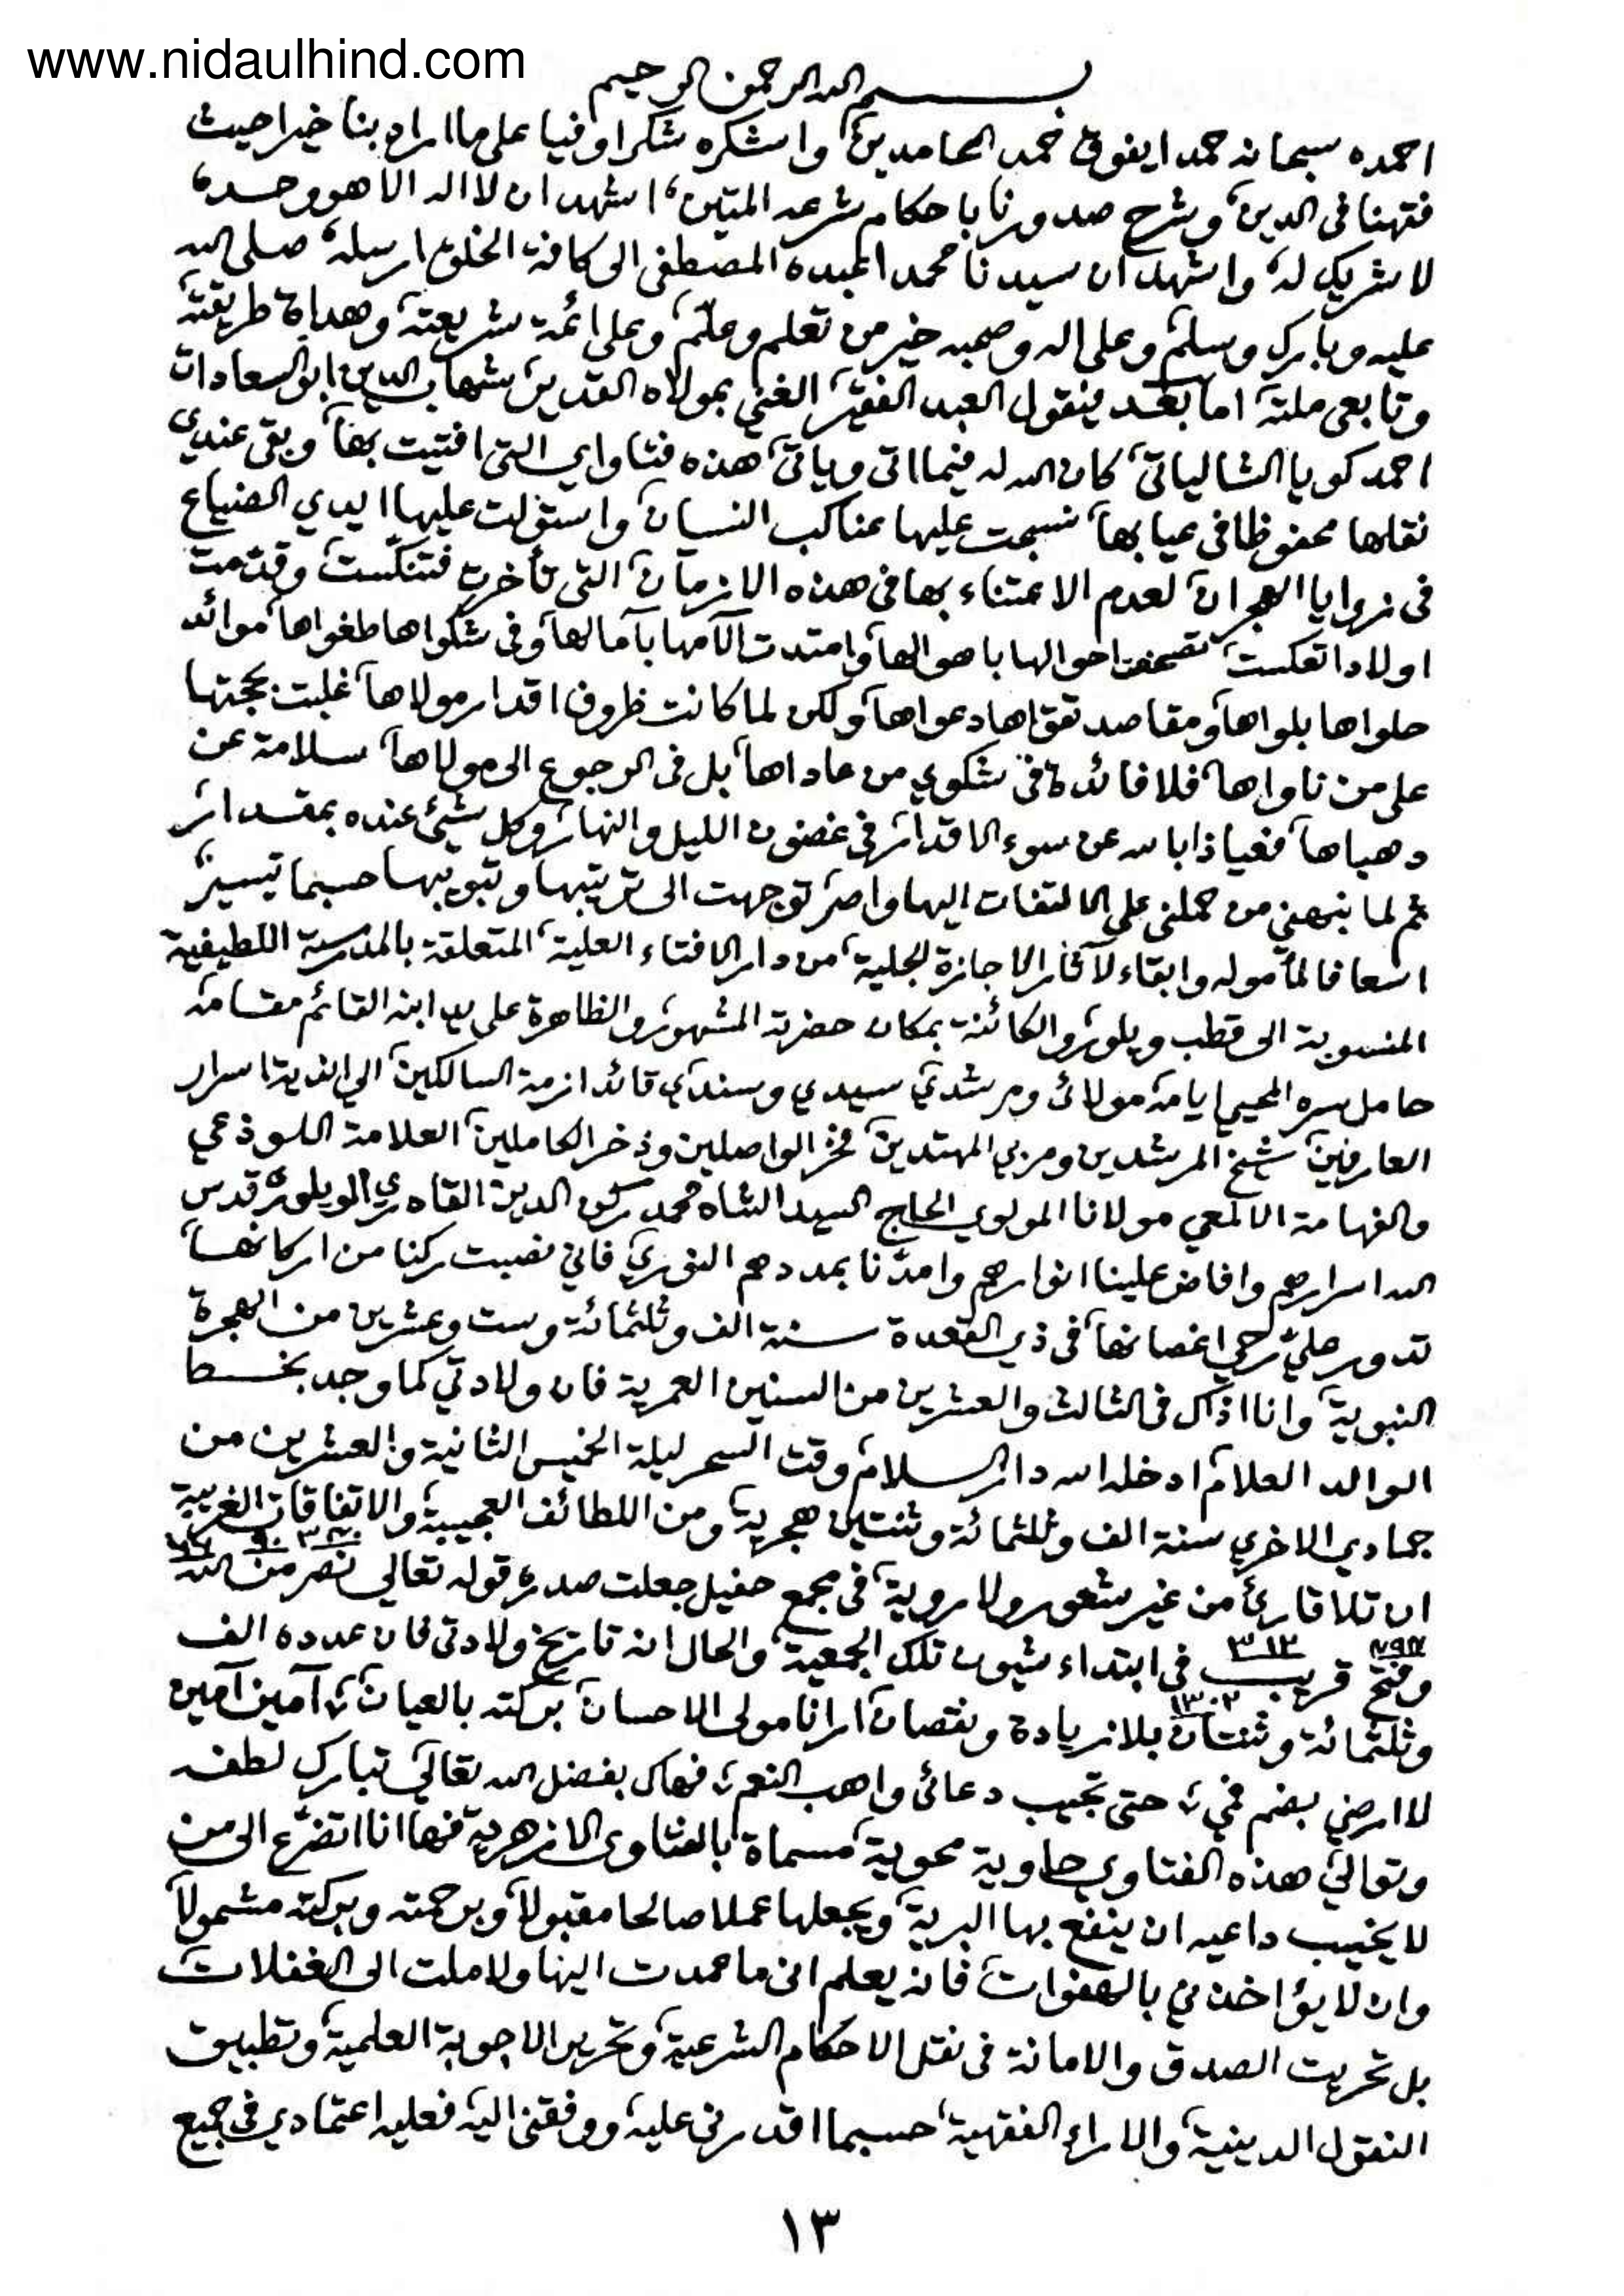 www.nidaulhind.com
بسم الله الرحمن الرحيم
احمده سبحانه حمدا يفوق حمد الحامدين، واشكره شكرا وفيا على ما اراد بنا خيرا حيث
فقهنا فى الدين، وشرح صدورنا باحكام شرعه المتين، اشهد ان لا اله الا هو وحده،
لا شريك له، واشهد ان سيدنا محمدا عبده المصطفى الى كافة الخلق ارسله، صلى الله
عليه وبارك وسلم، وعلى اله وصحبه خير من تعلم وعلّم، وعلى ائمة شريعته، وهداة طريقته،
وتابعى ملته، اما بعد فيقول العبد الفقير، الغني بمولاه القدير، شهاب الدين ابو السعادات
احمد كويا الشالياتى، كان الله له فيما اتى وياتى، هذه فتاواي التى افتيت بها، وبقى عندي
نقلها محفوظا فى عيابها، نسجت عليها عناكب النسيان، واستولت عليها ايدي الضياع
فى زوايا الهجران، لعدم الاعتناء بها فى هذه الازمان، التى تأخرت فتنكّست، وقدّمت
اولادا تعكست، احوالها باهوالها، وامتدت الآمها بآمالها، وفى شكواها طغواها، موائد
حلواها بلواها، ومقاصد تقواها دعواها، ولكن لما كانت ظروف اقدار مولاها، غلبت بحجتها
على من ناواها، فلا فائدة فى شكوي من عاداها، بل فى الرجوع الى مولاها، سلامة عن
دهياها، فعياذا بالله عن سوء الاقدار، فى غضون الليل والنهار، وكل شئ عنده بمقدار،
ثم لما نبهني من حملنى على الالتفات اليها واصر، توجهت الى ترتيبها وتبويبها حسبما تيسر،
اسعافا لمأموله وابقاء لآثار الاجازة الجلية، من دار الافتاء العلية، المتعلقة بالمدرسة اللطيفية
المنسوبة الى قطب ويلور، والكائنة بمكان حضرة المشهور، والظاهرة على يد ابنه القائم مقامه
حامل سره المحيى ايامه مولائ ومرشدي، سيدي وسندي، قائد ازمة السالكين، الى اسرار
العارفين، شيخ المرشدين ومربي المهتدين، فخر الواصلين وذخر الكاملين، العلامة اللوذعي
والفهامة الالمعي مولانا المولوي الحاج السيد الشاه محمد ركن الدين القادري الويلوري قدس
الله اسرارهم وافاض علينا انوارهم وامدّنا بمددهم النوري، فاني نصبت ركنا من اركانها،
تدور عليّ رحي اغصانها، فى ذي القعدة سنة الف وثلثمائة وست وعشرين من الهجرة
النبوية، وانا اذاك فى الثالث والعشرين من السنين العمرية فان ولادتي كما وجد بخط
الوالد العلام، ادخله الله دار السلام، وقت السحر ليلة الخميس الثانية والعشرين من
جمادي الاخري سنة الف وثلثمائة وثنتين هجرية، ومن اللطائف العجيبة، والاتفاقات الغريبة
ان تلا قارئ من غير شعور ولا روية، فى مجمع حفيل جعلت صدره، قوله تعالى نصر من الله
وفتح قريب فى ابتداء شيون تلك الجمعية، والحال انه تاريخ ولادتى فان عدده الف
وثلثمائة وثنتان بلا زيادة ونقصان، ارانا مولى الاحسان، بركته بالعيان، آمين آمين
لا ارضي بضم فمي، حتى تجيب دعائى واهب النعم، فهاك بفضل الله تعالى تبارك لطفه
وتوالى، هذه الفتاوى حاوية محوية، مسماة بالفتاوى الازهرية، فها انا اتضرّع الى من
لا يخيب داعيه ان ينفع بها البرية، ويجعلها عملا صالحا مقبولا، وبرحمته وبركته مشمولا،
وان لا يؤاخذني بالهفوات، فانه يعلم انى ما عمدت اليها ولا ملت الى الغفلات،
بل تحريت الصدق والامانة فى نقل الاحكام الشرعية، وتحرير الاجوبة العلمية، وتطبيق
النقول الدينية، والاراء الفقهية، حسبما اقدرنى عليه، ووفقنى اليه، فعليه اعتمادي فى جميع
١٣